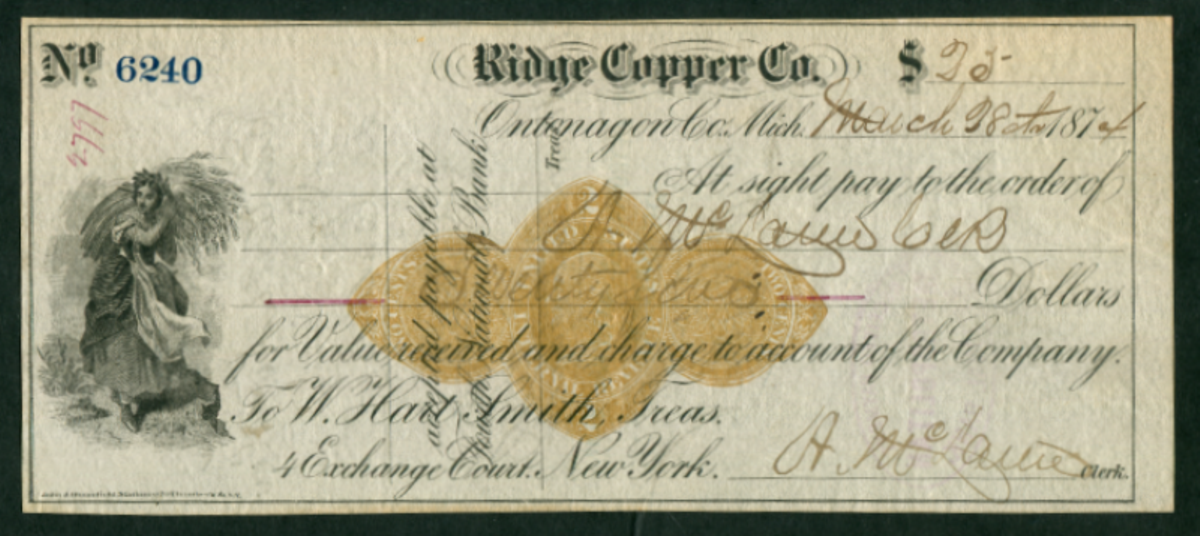 No. 6240
Ridge Copper Co.
$ 25
2797
Ontonagon Co. Mich. March 28th 1874
At sight pay to the order of
A. McLame
Twenty five Dollars
for Value received and charge to account of the Company.
To W. Hart Smith, Treas.
4 Exchange Court. New York.
A. McLame Clerk.
accepted payable at
National Bank
Treas